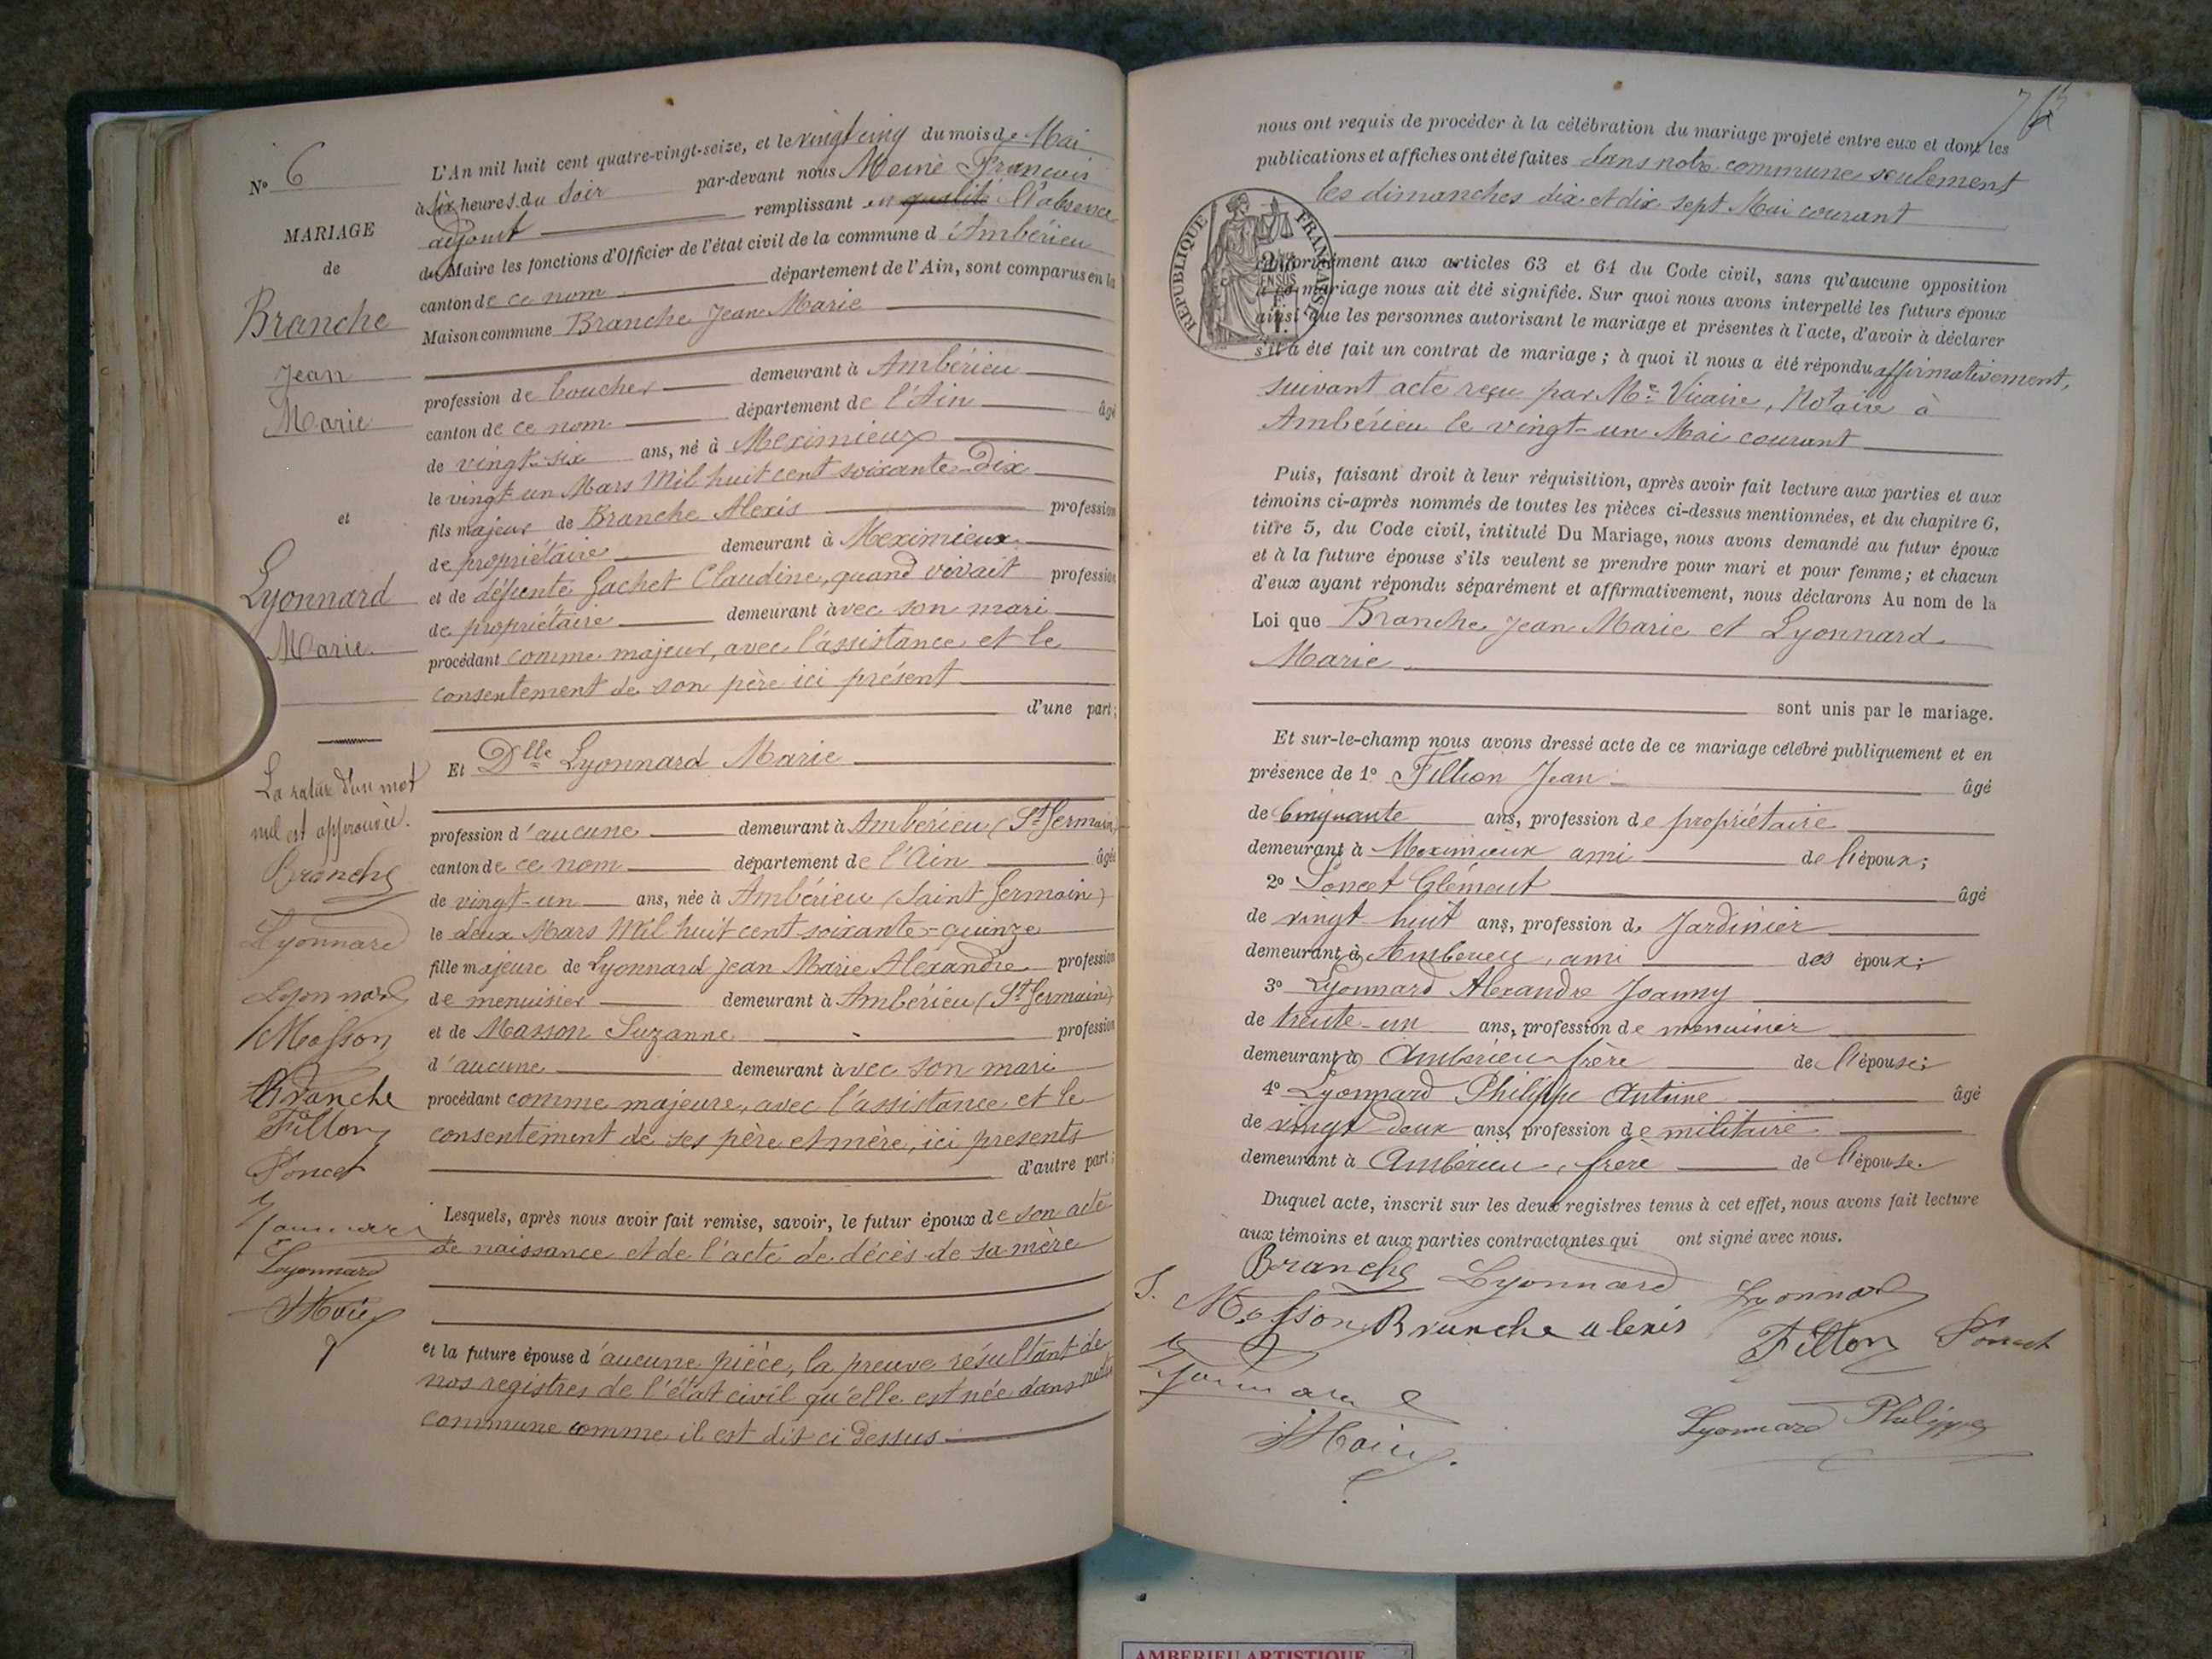 N° 6
MARIAGE
de
Branche
Jean
Marie
et
Lyonnard
Marie
La rature d'un mot
nul est approuvée.
Branche
Lyonnard
Lyonnard
Masson
Branche
Fillion
Poncet
Lyonnard
L'An mil huit cent quatre-vingt-seize, et le vingt cinq du mois de Mai
à six heures du soir par-devant nous François
adjoint remplissant en qualité l'absence
du Maire les fonctions d'Officier de l'état civil de la commune d'Ambérieu
canton de ce nom département de l'Ain, sont comparus en la
Maison commune Branche Jean Marie
profession de boucher demeurant à Ambérieu
canton de ce nom département de l'Ain âgé
de vingt-six ans, né à Meximieux
le vingt un Mars Mil huit cent soixante-Dix
fils majeur de Branche Alexis profession
de propriétaire demeurant à Meximieux
et de défunte Gachet Claudine, quand vivait profession
de propriétaire demeurant avec son mari
procédant comme majeur, avec l'assistance et le
consentement de son père ici présent
d'une part;
Et Dlle Lyonnard Marie
profession d'aucune demeurant à Ambérieu (St Germain)
canton de ce nom département de l'Ain âgée
de vingt-un ans, née à Ambérieu (Saint Germain)
le deux Mars Mil huit cent soixante-quinze
fille majeure de Lyonnard Jean Marie Aléxandre profession
de menuisier demeurant à Ambérieu (St Germain)
et de Masson Suzanne profession
d'aucune demeurant avec son mari
procédant comme majeure, avec l'assistance et le
consentement de ses père et mère, ici presents
d'autre part;
Lesquels, après nous avoir fait remise, savoir, le futur époux de son acte
de naissance et de l'acte de décès de sa mère
et la future épouse d'aucune pièce, la preuve résultant de
nos registres de l'état civil qu'elle est née dans notre
commune comme il est dit ci dessus
nous ont requis de procéder à la célébration du mariage projeté entre eux et dont les
publications et affiches ont été faites dans notre commune seulement
les dimanches dix et dix sept Mai courant
REPUBLIQUE FRANÇAISE
conformément aux articles 63 et 64 du Code civil, sans qu'aucune opposition
à ce mariage nous ait été signifiée. Sur quoi nous avons interpellé les futurs époux
ainsi que les personnes autorisant le mariage et présentes à l'acte, d'avoir à déclarer
s'il a été fait un contrat de mariage; à quoi il nous a été répondu affirmativement,
suivant acte reçu par Me Vicaire, Notaire à
Ambérieu le vingt-un Mai courant
Puis, faisant droit à leur réquisition, après avoir fait lecture aux parties et aux
témoins ci-après nommés de toutes les pièces ci-dessus mentionnées, et du chapitre 6,
titre 5, du Code civil, intitulé Du Mariage, nous avons demandé au futur époux
et à la future épouse s'ils veulent se prendre pour mari et pour femme; et chacun
d'eux ayant répondu séparément et affirmativement, nous déclarons Au nom de la
Loi que Branche Jean Marie et Lyonnard
Marie
sont unis par le mariage.
Et sur-le-champ nous avons dressé acte de ce mariage célébré publiquement et en
présence de 1° Fillion Jean âgé
de Cinquante ans, profession de propriétaire
demeurant à Meximieux ami de l'époux;
2° Poncet Clément âgé
de vingt huit ans, profession de Jardinier
demeurant à Ambérieu, ami des époux;
3° Lyonnard Alexandre Joanny
de trente-un ans, profession de menuisier
demeurant à Ambérieu frère de l'épouse;
4° Lyonnard Philippe Antoine âgé
de vingt deux ans, profession de militaire
demeurant à Ambérieu, frère de l'épouse.
Duquel acte, inscrit sur les deux registres tenus à cet effet, nous avons fait lecture
aux témoins et aux parties contractantes qui ont signé avec nous.
Branche Lyonnard Lyonnard
S. Masson Branche alexis Fillion Poncet
Lyonnard
Lyonnard Philippe
AMBERIEU ARTISTIQUE